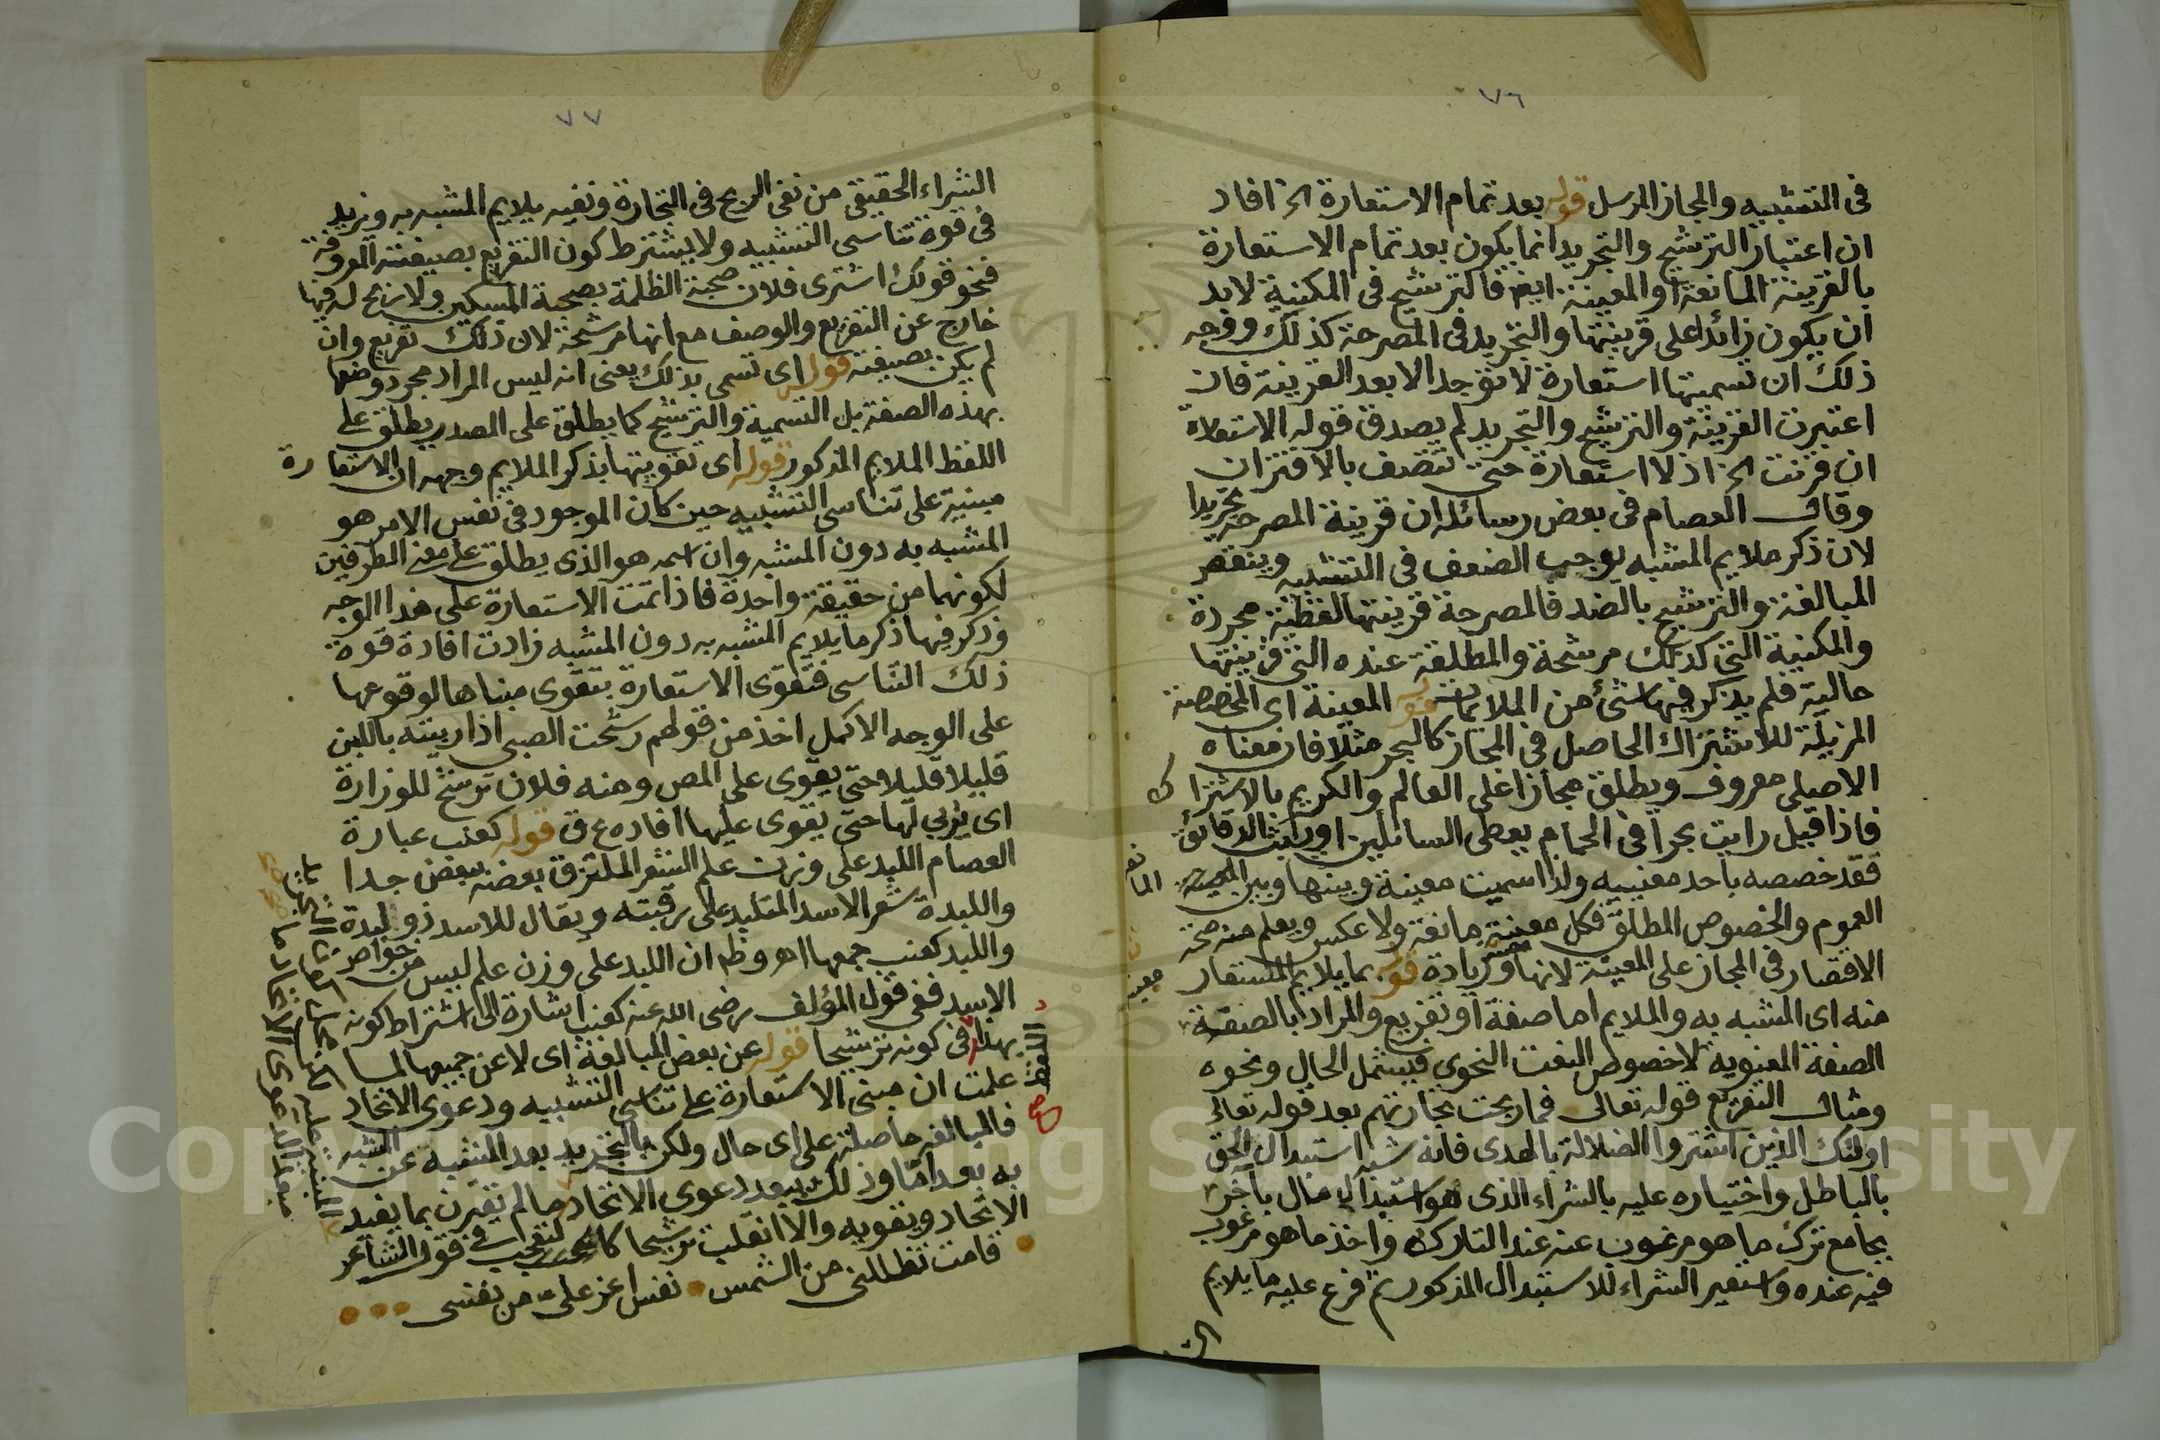 ٧٦
في التشبيه والمجاز المرسل قوله بعد تمام الاستعارة الخ افاد
ان اعتبار الترشيح والتجريد انما يكون بعد تمام الاستعارة
بالقرينة المانعة والمعينة ايضا فالترشيح في المكنية لابد
ان يكون زائدا على قرينتها والتجريد في المصرحة كذلك ووجه
ذلك ان تسميتها استعارة لا توجد الا بعد القرينة فان
اعتبرت القرينة والترشيح والتجريد لم يصدق قوله الاستعارة
ان قرنت الخ اذ لا استعارة حتى تتصف بالاقتران
وقال العصام في بعض رسائله ان قرينة المصرحة تجريدا
لان ذكر ملايم المشبه يوجب الضعف في التشبيه وينقص
المبالغة والترشيح بالضد فالمصرحة قرينتها لفظية مجردة
والمكنية التي كذلك مرشحة والمطلقة عنده التي قرينتها
حالية فلم يذكر فيها شئ من الملايمات قوله المعينة اي المخصصة
المزيلة للاشتراك الحاصل في المجاز كالبحر مثلا فان معناه
الاصلي معروف ويطلق مجازا على العالم والكريم بالاشتراك
فاذا قيل رايت بحرا في الحمام يعطي السائلين او رايت الدقائق
فقد خصصه باحد معنييه ولذا سميت معينة وبينها وبين المعينة المانعة
العموم والخصوص المطلق فكل معينة مانعة ولا عكس ويعلم منه صحة
الاقتصار في المجاز على المعينة لانها وزيادة قوله بما يلايم المستعار
معينة
منه اي المشبه به والملايم اما صفة او تفريع والمراد بالصفة
الصفة المعنوية لا خصوص النعت النحوي فيشمل الحال ونحوه
ومثال التفريع قوله تعالى فما ربحت تجارتهم بعد قوله تعالى
اولئك الذين اشتروا الضلالة بالهدى فانه شبه استبدال الحق
بالباطل واختياره عليه بالشراء الذي هو استبدال مال بآخر
بجامع ترك ما هو مرغوب عنه عند التارك واخذ ما هو مرغوب
فيه عنده واستعير الشراء للاستبدال المذكور ثم فرع عليه ما يلايم
٧٧
الشراء الحقيقي من نفي الربح في التجارة ونفيه يلايم المشبه به ويزيد
في قوة تناسي التشبيه ولا يشترط كون التفريع بصيغته المعروفة
فنحو قولك اشترى فلان صحبة الظلمة بصحبة المسكين ولا ربح له فيها
خارج عن التفريع والوصف مع انها مرشحة لان ذلك تفريع وان
لم يكن بصيغته قوله اي تسمى بذلك يعني انه ليس المراد مجرد وصفها
بهذه الصفة بل التسمية والترشيح كما يطلق على المصدر يطلق على
اللفظ الملايم المذكور قوله اي تقويتها بذكر الملايم وجهه ان الاستعارة
مبنية على تناسي التشبيه حين كان الموجود في نفس الامر هو
المشبه به دون المشبه وان اسمه هو الذي يطلق على معنى الطرفين
لكونهما من حقيقة واحدة فاذا تمت الاستعارة على هذا الوجه
وذكر فيها ذكر ما يلايم المشبه به دون المشبه زادت افادة قوة
ذلك التناسي فتقوى الاستعارة بتقوى مبناها لوقوعها
على الوجه الاكمل اخذ من قولهم رشحت الصبي اذا ربيته باللبن
قليلا قليلا حتى يقوى على المص ومنه فلان ترشح للوزارة
اي يربي لها حتى يقوى عليها افاده ع ق قوله كعنب عبارة
العصام اللبد على وزن علم الشعر الملتزق بعضه ببعض جدا
واللبدة شعر الاسد المتلبد على رقبته ويقال للاسد ذو لبدة
واللبد كعنب جمعها اهـ وظه ان اللبد على وزن علم ليس من خواص
الاسد ففي قول المؤلف رضي الله عنه كعنب اشارة الى اشتراط كونه
بهذا في كونه ترشيحا قوله عن بعض المبالغة اي لا عن جميعها لما
اللفظ صح
علمت ان مبنى الاستعارة على تناسي التشبيه ودعوى الاتحاد
فالمبالغة حاصلة على اي حال ولكن بالتجريد بعد المشبه عن المشبه
به بعدا ما وذلك يبعد دعوى الاتحاد ما لم يقترن بما يفيد
الاتحاد ويقويه والا انقلب ترشيحا كالتعجب في قول الشاعر
قامت تظللني من الشمس نفس اعز علي من نفسي